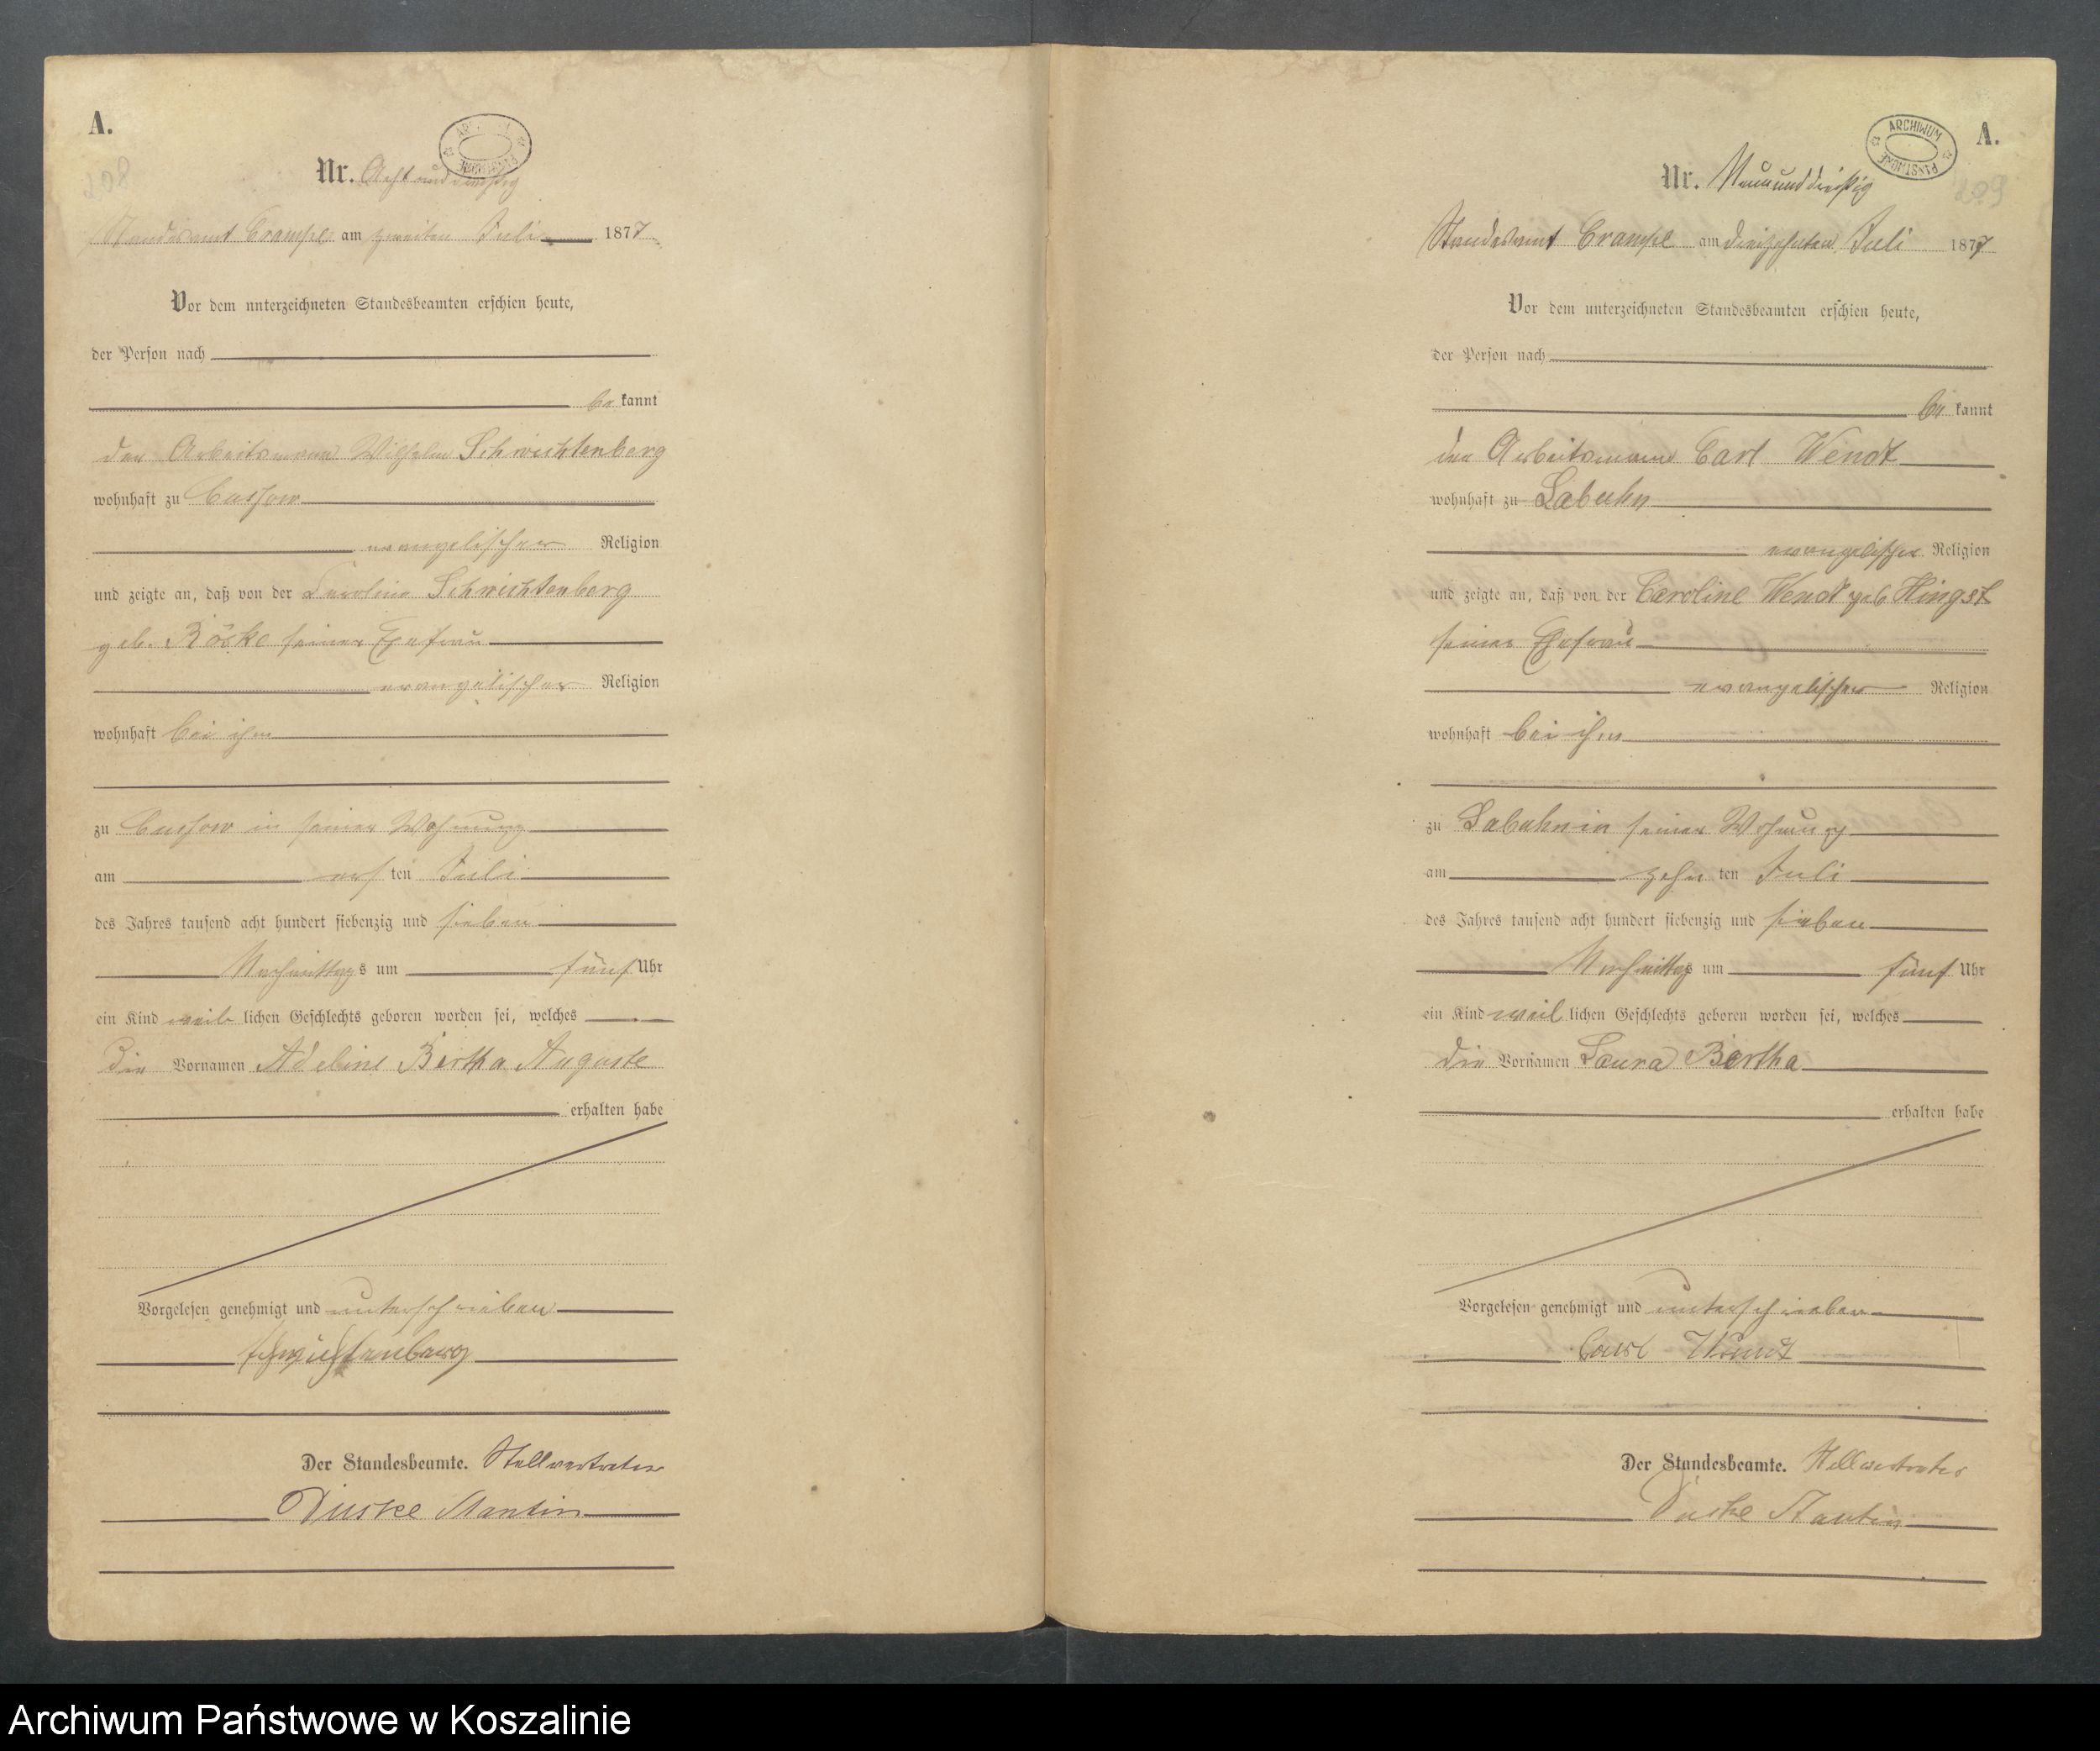 A.
208
ARCHIWUM PAŃSTWOWE
Nr. Acht und dreißig
Standesamt Crampe am zweiten Juli 1877
Vor dem unterzeichneten Standesbeamten erschien heute,
der Person nach
be kannt
der Arbeitsmann Wilhelm Schwichtenberg
wohnhaft zu Cussow
evangelischer Religion
und zeigte an, daß von der Caroline Schwichtenberg
geb. Röske seiner Ehefrau
evangelischer Religion
wohnhaft bei ihm
zu Cussow in seiner Wohnung
am ten Juli
des Jahres tausend acht hundert siebenzig und sieben
Nachmittags um fünf Uhr
ein Kind weib lichen Geschlechts geboren worden sei, welches
die Vornamen Adeline Bertha Auguste
erhalten habe
Vorgelesen genehmigt und unterschrieben
Schwichtenberg
Der Standesbeamte. Stellvertreter
A.
209
ARCHIWUM PAŃSTWOWE
Nr. Neununddreißig
Standesamt Crampe am dreizehnten Juli 1877
Vor dem unterzeichneten Standesbeamten erschien heute,
der Person nach
be kannt
der Arbeitsmann Carl Wendt
wohnhaft zu Labuhn
evangelischer Religion
und zeigte an, daß von der Caroline Wendt geb Hingst
seiner Ehefrau
evangelischer Religion
wohnhaft bei ihm
zu Labuhn in seiner Wohnung
am zehn ten Juli
des Jahres tausend acht hundert siebenzig und sieben
Nachmittag um fünf Uhr
ein Kind weib lichen Geschlechts geboren worden sei, welches
die Vornamen Laura Bertha
erhalten habe
Vorgelesen genehmigt und unterschrieben
Carl Wendt
Der Standesbeamte. Stellvertreter
Archiwum Państwowe w Koszalinie